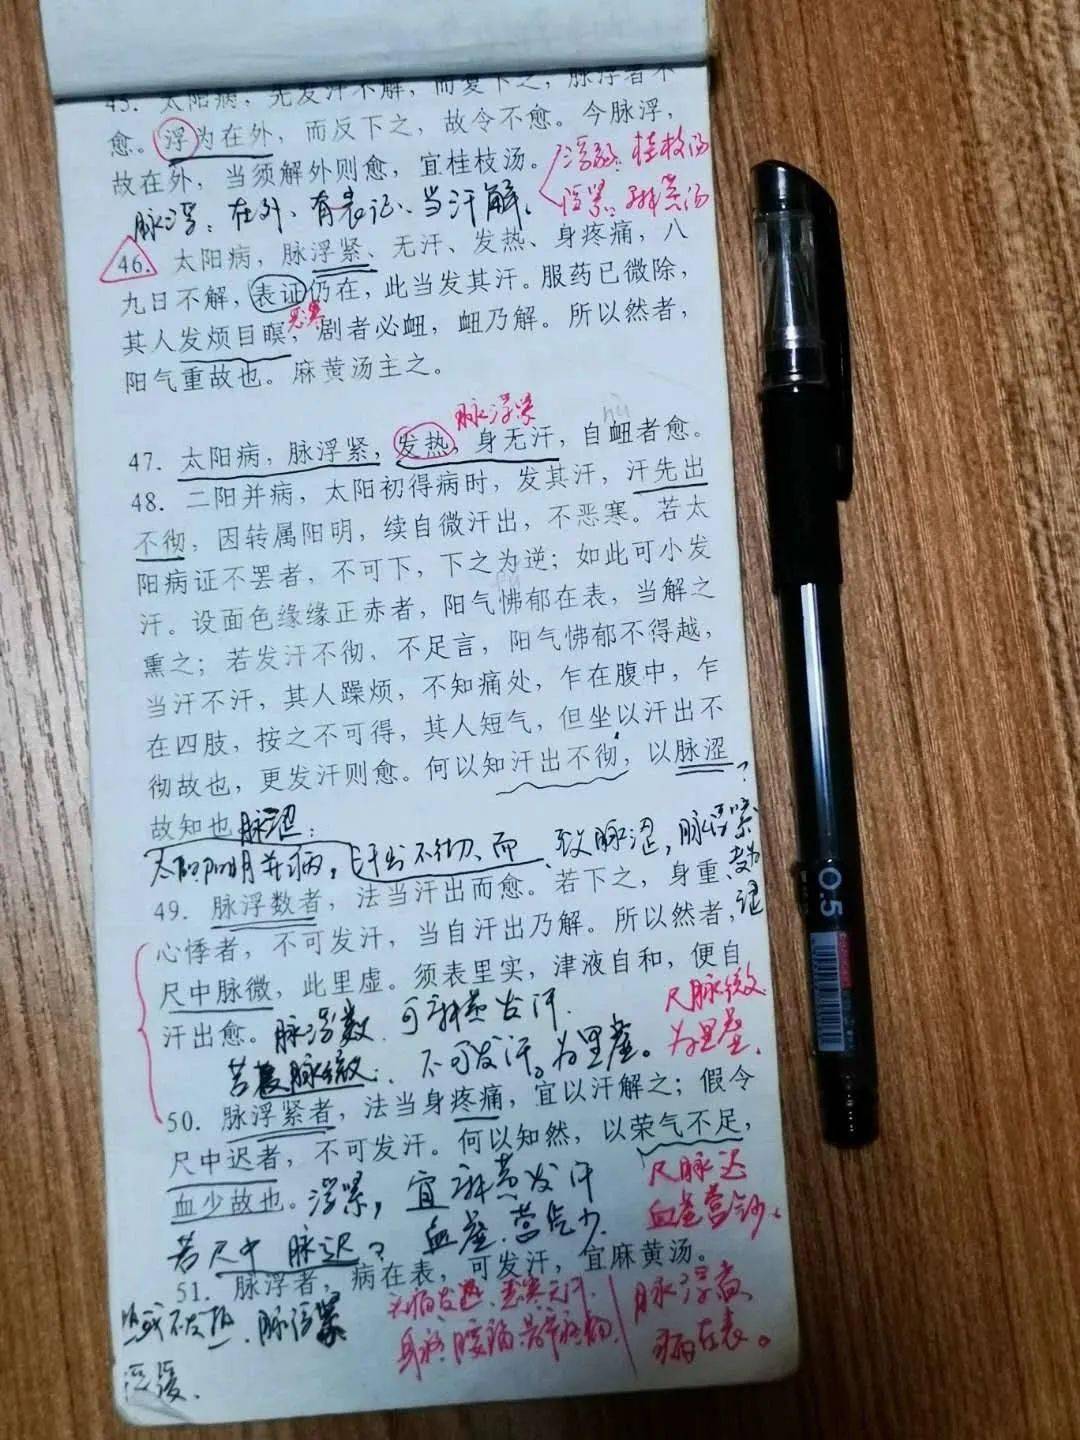 45. 太阳病，先发汗不解，而复下之，脉浮者不
愈。浮为在外，而反下之，故令不愈。今脉浮，
故在外，当须解外则愈，宜桂枝汤。
浮缓：桂枝汤
浮紧：麻黄汤
脉浮：在外、有表证、当汗解。
46. 太阳病，脉浮紧、无汗、发热、身疼痛，八
九日不解，表证仍在，此当发其汗。服药已微除，
其人发烦目瞑，剧者必衄，衄乃解。所以然者，
阳气重故也。麻黄汤主之。
脉浮紧
nǜ
47. 太阳病，脉浮紧，发热，身无汗，自衄者愈。
48. 二阳并病，太阳初得病时，发其汗，汗先出
不彻，因转属阳明，续自微汗出，不恶寒。若太
阳病证不罢者，不可下，下之为逆；如此可小发
汗。设面色缘缘正赤者，阳气怫郁在表，当解之
熏之；若发汗不彻、不足言，阳气怫郁不得越，
当汗不汗，其人躁烦，不知痛处，乍在腹中，乍
在四肢，按之不可得，其人短气，但坐以汗出不
彻故也，更发汗则愈。何以知汗出不彻，以脉涩
故知也 脉涩：
太阳阳明并病，汗出不彻、而致脉涩，脉浮紧
49. 脉浮数者，法当汗出而愈。若下之，身重、
心悸者，不可发汗，当自汗出乃解。所以然者，
尺中脉微，此里虚。须表里实，津液自和，便自
汗出愈。脉浮数．可麻黄发汗．
尺脉微
为里虚．
脉微：不可发汗。为里虚。
50. 脉浮紧者，法当身疼痛，宜以汗解之；假令
尺中迟者，不可发汗。何以知然，以荣气不足，
血少故也。浮紧，宜麻黄发汗
尺脉迟
血虚营气少．
若尺中脉迟？血虚．营气少．
51. 脉浮者，病在表，可发汗，宜麻黄汤。
头痛发热．恶寒无汗．
身疼腰痛骨节疼痛．
脉浮者，
病在表。
或不发热．脉浮紧
浮缓．
0.5